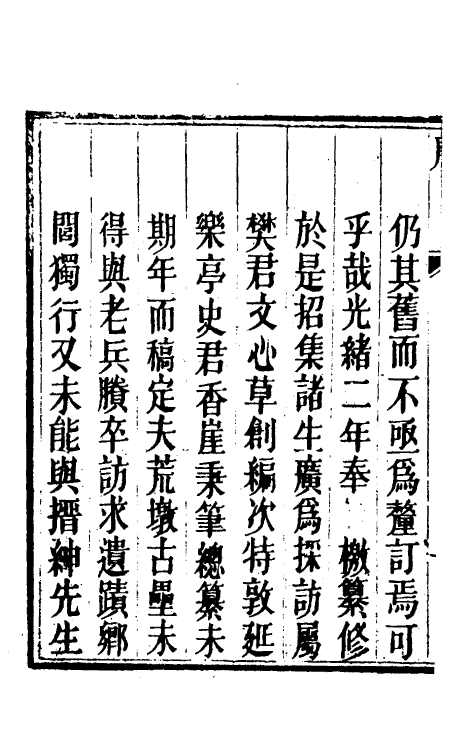 仍其舊而不亟爲釐訂焉可
乎哉光緒二年奉　檄纂修
於是招集諸生廣爲採訪屬
樊君文心草創編次特敦延
樂亭史君香崖秉筆總纂未
期年而稿定夫荒墩古壘未
得與老兵賸卒訪求遺蹟鄉
閭獨行又未能與搢紳先生